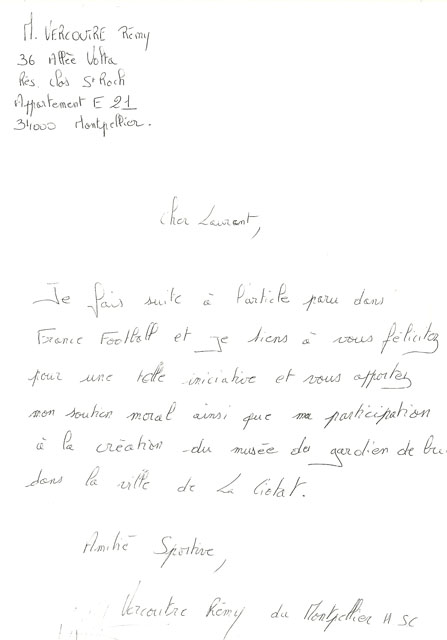 M. VERCOUTRE Rémy
36 Allée Volta
Rés. Clos St Roch
Appartement E 21
34000 Montpellier.
Cher Laurent,
Je fais suite à l'article paru dans
France Football et je tiens à vous félicitez
pour une telle iniciative et vous apportez
mon soutien moral ainsi que ma participation
à la création du musée du gardien de bu
dans la ville de La Ciotat.
Amitié Sportive,
Vercoutre Rémy du Montpellier H SC